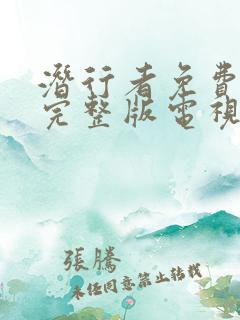 潛行者免費
完整版電視
張騰
未經同意禁止轉載